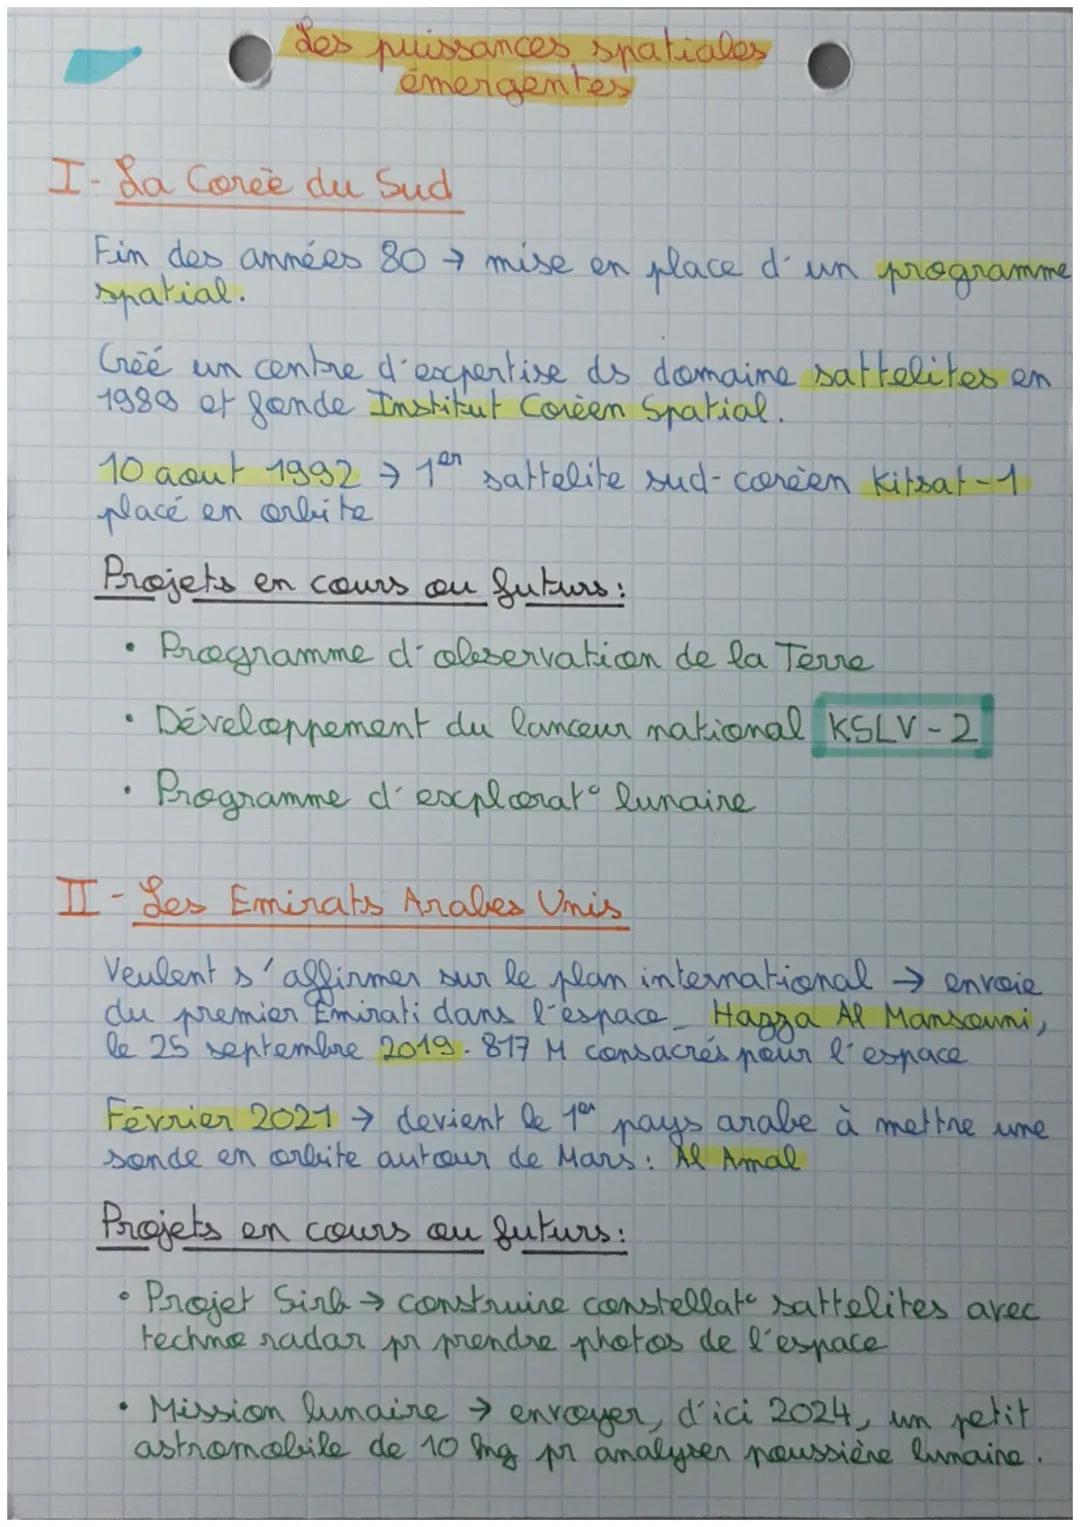 Les puissances spatiales
émergentes
I- La Corée du Sud
Fin des années 80 → mise en place d'un programme
spatial.
Créé un centre d'expertise ds domaine sattelites en
1989 et fonde Institut Coréen Spatial.
10 aout 1992 → 1er sattelite sud-coréen Kitsat-1
placé en orbite
Projets en cours ou futurs :
• Programme d'observation de la Terre
• Développement du lanceur national KSLV-2
• Programme d'explorat° lunaire
II- Les Emirats Arabes Unis
Veulent s'affirmer sur le plan international → envoie
du premier Émirati dans l'espace_ Hazza Al Mansouri,
le 25 septembre 2019. 817 M consacrés pour l'espace
Février 2021 → devient le 1er pays arabe à mettre une
sonde en orbite autour de Mars : Al Amal
Projets en cours ou futurs :
• Projet Sirb → construire constellat° sattelites avec
techno radar pr prendre photos de l'espace
• Mission lunaire → envoyer, d'ici 2024, un petit
astromobile de 10 kg pr analyser poussière lunaire.